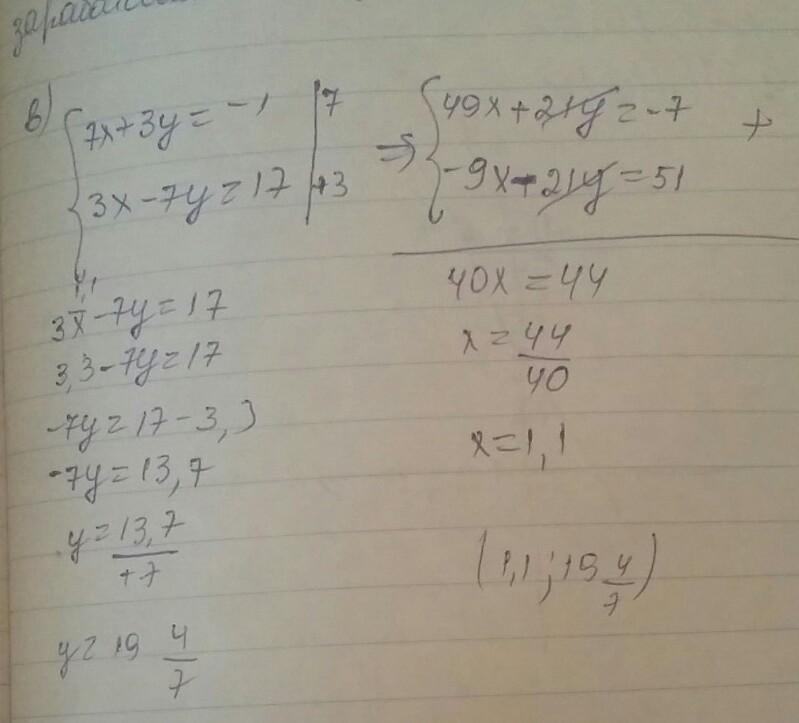 в)
7x+3y=-1 | 7
3x-7y=17 | +3
=> 49x+21y=-7 +
-9x-21y=51
40x=44
x=44/40
x=1,1
1,1
3x-7y=17
3,3-7y=17
-7y=17-3,3
-7y=13,7
y=13,7/+7
y=19 4/7
(1,1; 19 4/7)